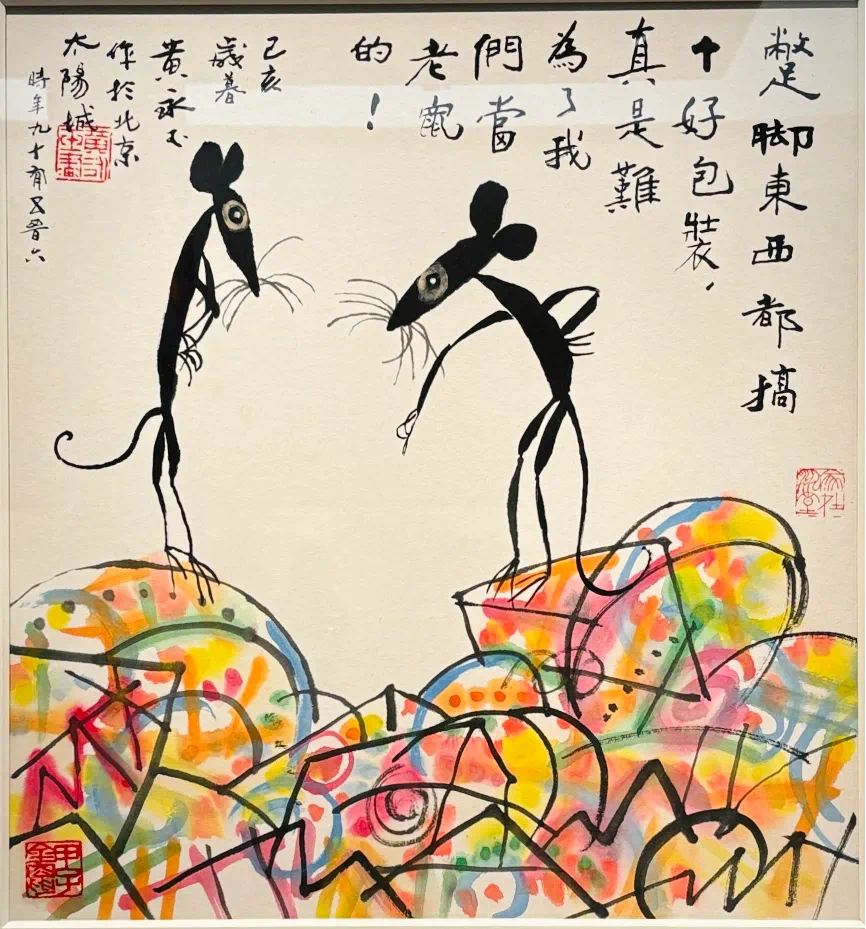 蹩脚東西都搞
个好包裝，
真是難
為了我
們當
老鼠
的！
己亥
歲暮
黄永玉
作於北京
太陽城
時年九十有五晉六
甲子